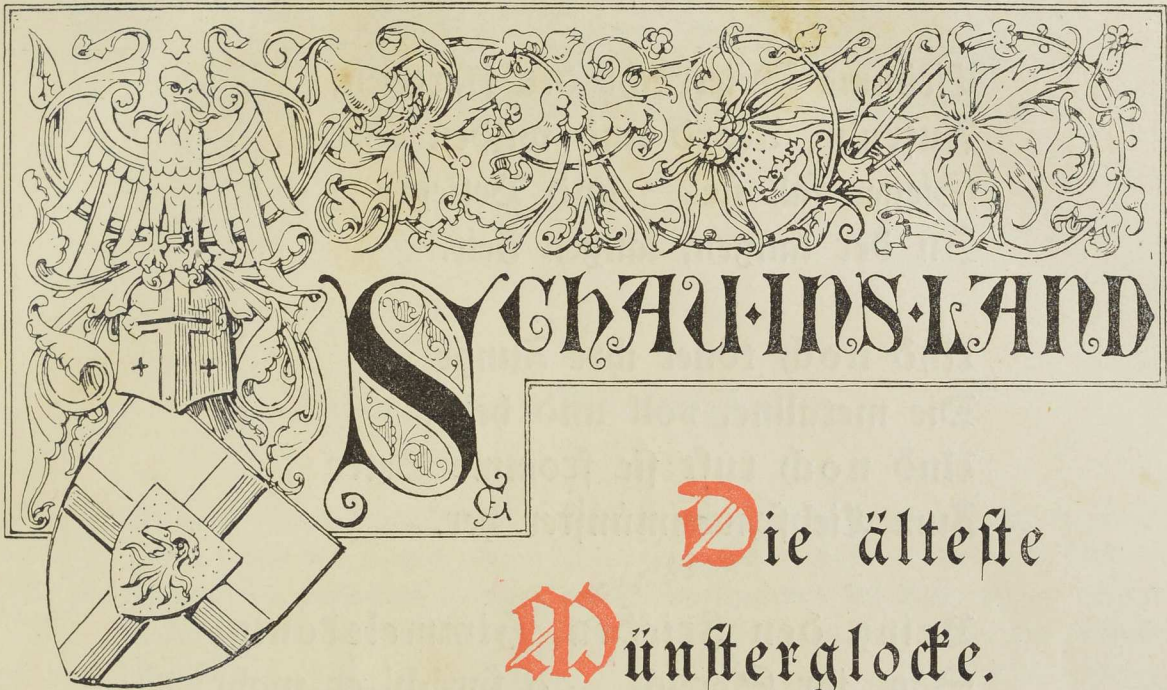 SCHAU·INS·LAND
Die älteſte
Münſterglocke.